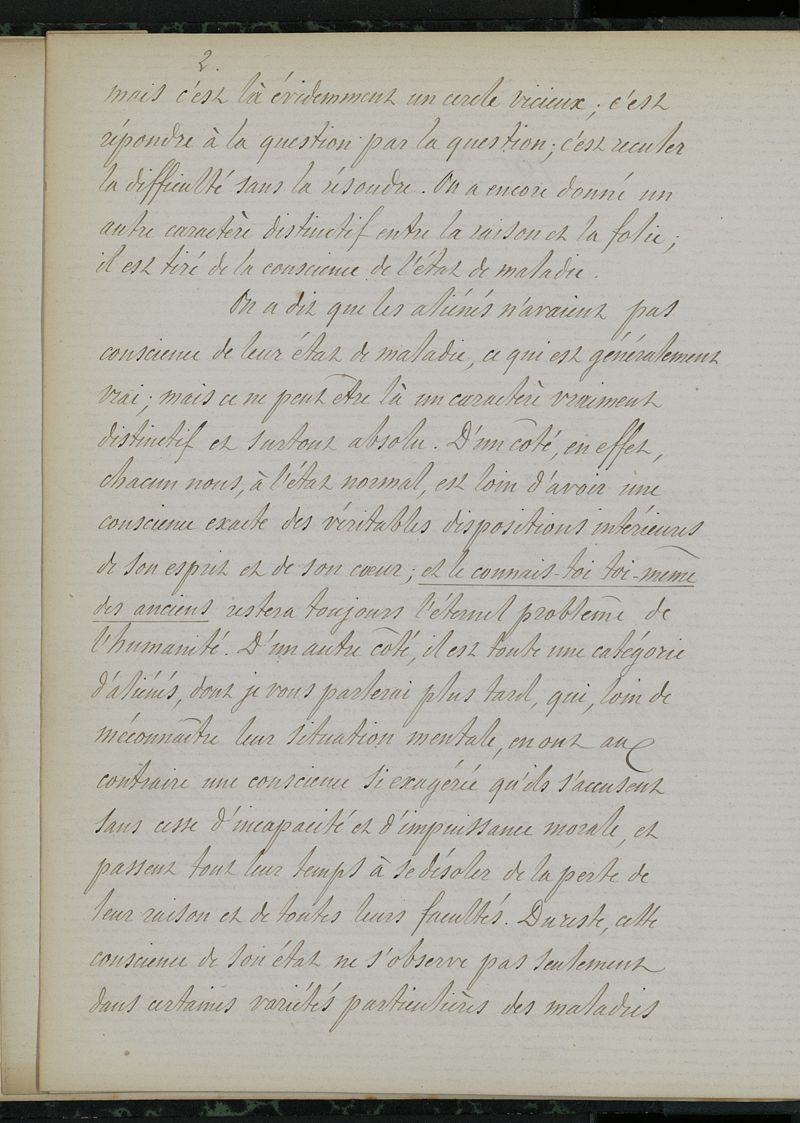 2.
mais c'est là évidemment un cercle vicieux ; c'est
répondre à la question par la question ; c'est reculer
la difficulté sans la résoudre. On a encore donné un
autre caractère distinctif entre la raison et la folie ;
il est tiré de la conscience de l'état de maladie.
On a dit que les aliénés n'avaient pas
conscience de leur état de maladie, ce qui est généralement
vrai ; mais ce ne peut être là un caractère vraiment
distinctif et surtout absolu. D'un côté, en effet,
chacun nous, à l'état normal, est loin d'avoir une
conscience exacte des véritables dispositions intérieures
de son esprit et de son cœur ; et le connais-toi toi-même
des anciens restera toujours l'éternel problême de
l'humanité. D'un autre côté, il est toute une catégorie
d'aliénés, dont je vous parlerai plus tard, qui, loin de
méconnaître leur situation mentale, en ont au
contraire une conscience si exagérée qu'ils s'accusent
sans cesse d'incapacité et d'impuissance morale, et
passent tout leur temps à se désoler de la perte de
leur raison et de toutes leurs facultés. Du reste, cette
conscience de son état ne s'observe pas seulement
dans certaines variétés particulières des maladies